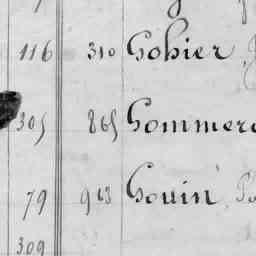 116 310 Gohier,
305 865 Gommer
79 913 Gouin,
309